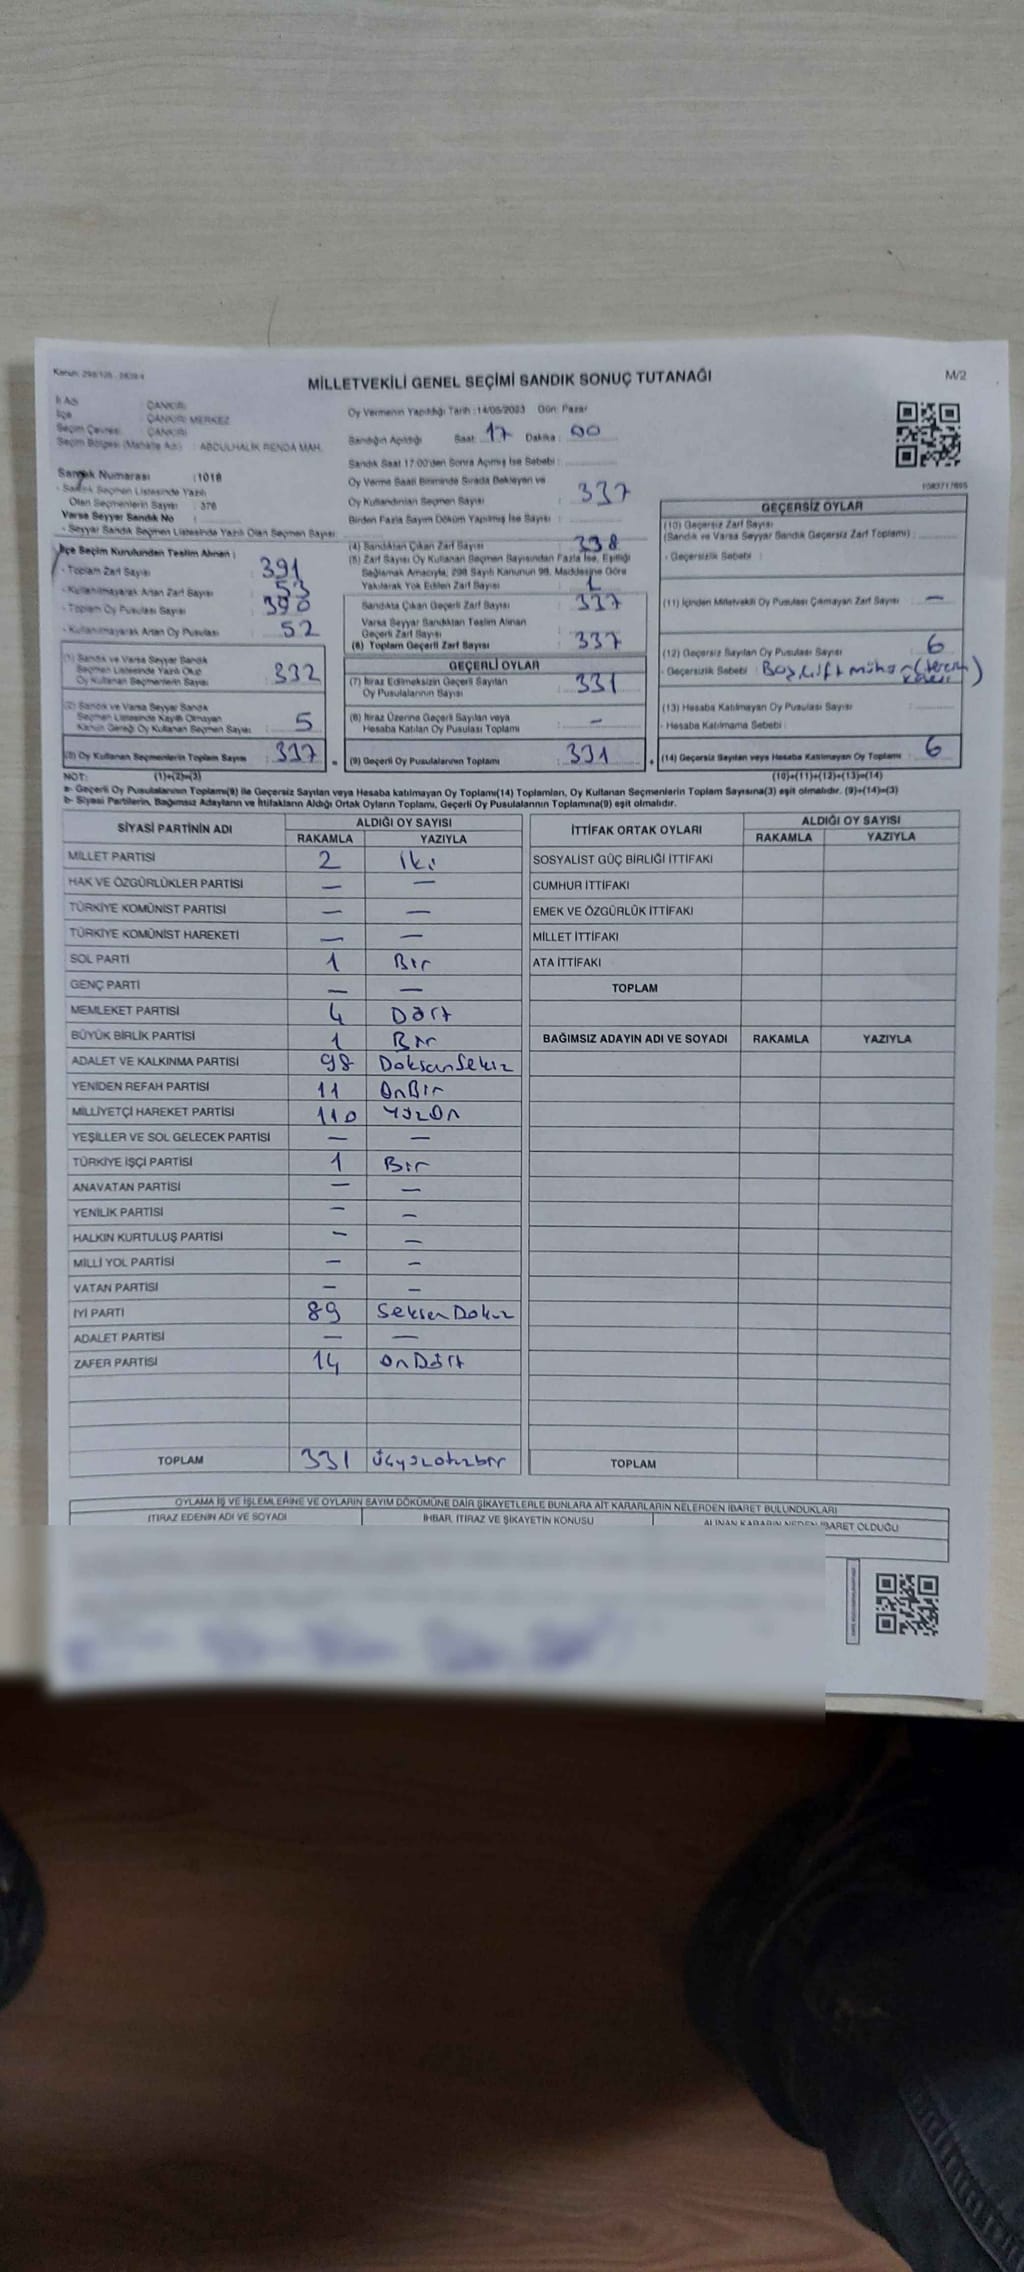 MİLLETVEKİLİ GENEL SEÇİMİ SANDIK SONUÇ TUTANAĞI
M/2
İl Adı : ÇANKIRI
İlçe : ÇANKIRI MERKEZ
Seçim Çevresi : ÇANKIRI
Seçim Bölgesi (Mahalle Adı) : ABDULHALİK RENDA MAH.
Sandık Numarası :1018
- Sandık Seçmen Listesinde Yazılı
Olan Seçmenlerin Sayısı : 376
Varsa Seyyar Sandık No :
- Seyyar Sandık Seçmen Listesinde Yazılı Olan Seçmen Sayısı :
Oy Vermenin Yapıldığı Tarih :14/05/2023 Gün: Pazar
Sandığın Açıldığı Saat: 17 Dakika : 00
Sandık Saat 17:00'den Sonra Açılmış İse Sebebi :
Oy Verme Saati Bitiminde Sırada Bekleyen ve
Oy Kullandırılan Seçmen Sayısı : 337
Birden Fazla Sayım Döküm Yapılmış İse Sayısı :
İlçe Seçim Kurulundan Teslim Alınan :
- Toplam Zarf Sayısı : 391
- Kullanılmayarak Artan Zarf Sayısı : 53
- Toplam Oy Pusulası Sayısı : 390
- Kullanılmayarak Artan Oy Pusulası : 52
(1) Sandık ve Varsa Seyyar Sandık
Seçmen Listesinde Yazılı Olup
Oy Kullanan Seçmenlerin Sayısı : 332
(2) Sandık ve Varsa Seyyar Sandık
Seçmen Listesinde Kayıtlı Olmayan
Kanun Gereği Oy Kullanan Seçmen Sayısı : 5
(3) Oy Kullanan Seçmenlerin Toplam Sayısı : 337
(4) Sandıktan Çıkan Zarf Sayısı : 338
(5) Zarf Sayısı Oy Kullanan Seçmen Sayısından Fazla İse, Eşitliği
Sağlamak Amacıyla, 298 Sayılı Kanunun 98. Maddesine Göre
Yakılarak Yok Edilen Zarf Sayısı : 1
Sandıkta Çıkan Geçerli Zarf Sayısı : 337
Varsa Seyyar Sandıktan Teslim Alınan
Geçerli Zarf Sayısı :
(6) Toplam Geçerli Zarf Sayısı : 337
GEÇERLİ OYLAR
(7) İtiraz Edilmeksizin Geçerli Sayılan
Oy Pusulalarının Sayısı : 331
(8) İtiraz Üzerine Geçerli Sayılan veya
Hesaba Katılan Oy Pusulası Toplamı : –
(9) Geçerli Oy Pusulalarının Toplamı : 331
GEÇERSİZ OYLAR
(10) Geçersiz Zarf Sayısı
(Sandık ve Varsa Seyyar Sandık Geçersiz Zarf Toplamı) :
- Geçersizlik Sebebi :
(11) İçinden Milletvekili Oy Pusulası Çıkmayan Zarf Sayısı : –
(12) Geçersiz Sayılan Oy Pusulası Sayısı : 6
- Geçersizlik Sebebi :
(13) Hesaba Katılmayan Oy Pusulası Sayısı :
- Hesaba Katılmama Sebebi :
(14) Geçersiz Sayılan veya Hesaba Katılmayan Oy Toplamı : 6
NOT: (1)+(2)=(3) (10)+(11)+(12)+(13)=(14)
a- Geçerli Oy Pusulalarının Toplamı(9) ile Geçersiz Sayılan veya Hesaba katılmayan Oy Toplamı(14) Toplamları, Oy Kullanan Seçmenlerin Toplam Sayısına(3) eşit olmalıdır. (9)+(14)=(3)
b- Siyasi Partilerin, Bağımsız Adayların ve İttifakların Aldığı Ortak Oyların Toplamı, Geçerli Oy Pusulalarının Toplamına(9) eşit olmalıdır.
SİYASİ PARTİNİN ADI ALDIĞI OY SAYISI
RAKAMLA YAZIYLA
MİLLET PARTİSİ 2 İki
HAK VE ÖZGÜRLÜKLER PARTİSİ – –
TÜRKİYE KOMÜNİST PARTİSİ – –
TÜRKİYE KOMÜNİST HAREKETİ – –
SOL PARTİ 1 Bir
GENÇ PARTİ – –
MEMLEKET PARTİSİ 4 Dört
BÜYÜK BİRLİK PARTİSİ 1 Bir
ADALET VE KALKINMA PARTİSİ 98 DoksanSekiz
YENİDEN REFAH PARTİSİ 11 OnBir
MİLLİYETÇİ HAREKET PARTİSİ 110 YüzOn
YEŞİLLER VE SOL GELECEK PARTİSİ – –
TÜRKİYE İŞÇİ PARTİSİ 1 Bir
ANAVATAN PARTİSİ – –
YENİLİK PARTİSİ – –
HALKIN KURTULUŞ PARTİSİ – –
MİLLİ YOL PARTİSİ – –
VATAN PARTİSİ – –
İYİ PARTİ 89 Seksen Dokuz
ADALET PARTİSİ – –
ZAFER PARTİSİ 14 OnDört
TOPLAM 331 Üçyüzotuzbir
İTTİFAK ORTAK OYLARI ALDIĞI OY SAYISI
RAKAMLA YAZIYLA
SOSYALİST GÜÇ BİRLİĞİ İTTİFAKI
CUMHUR İTTİFAKI
EMEK VE ÖZGÜRLÜK İTTİFAKI
MİLLET İTTİFAKI
ATA İTTİFAKI
TOPLAM
BAĞIMSIZ ADAYIN ADI VE SOYADI RAKAMLA YAZIYLA
TOPLAM
OYLAMA İŞ VE İŞLEMLERİNE VE OYLARIN SAYIM DÖKÜMÜNE DAİR ŞİKAYETLERLE BUNLARA AİT KARARLARIN NELERDEN İBARET BULUNDUKLARI
İTİRAZ EDENİN ADI VE SOYADI İHBAR, İTİRAZ VE ŞİKAYETİN KONUSU ALINAN KARARIN NEDEN İBARET OLDUĞU